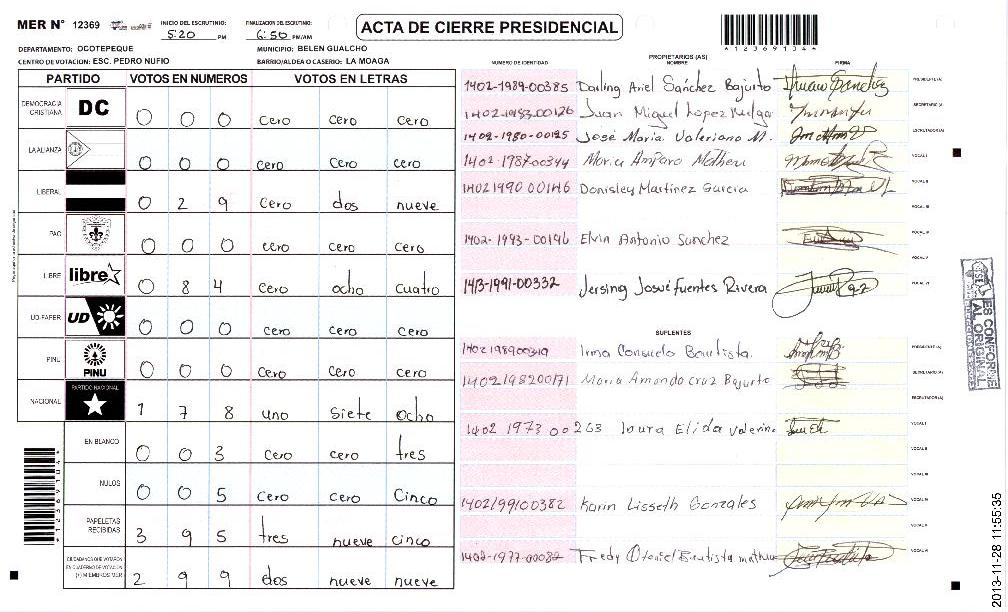 MER N° 12369
INICIO DEL ESCRUTINIO:
5:20 PM
FINALIZACION DEL ESCRUTINIO:
6:50 PM/AM
ACTA DE CIERRE PRESIDENCIAL
*12369104*
DEPARTAMENTO: OCOTEPEQUE
MUNICIPIO: BELEN GUALCHO
CENTRO DE VOTACION: ESC. PEDRO NUFIO
BARRIO/ALDEA O CASERIO: LA MOAGA
PARTIDO VOTOS EN NUMEROS VOTOS EN LETRAS
DEMOCRACIA CRISTIANA DC 0 0 0 cero cero cero
LA ALIANZA 0 0 0 cero cero cero
LIBERAL 0 2 9 cero dos nueve
PAC 0 0 0 cero cero cero
LIBRE libre 0 8 4 cero ocho cuatro
UD-FAPER UD 0 0 0 cero cero cero
PINU PINU 0 0 0 cero cero cero
NACIONAL PARTIDO NACIONAL 1 7 8 uno siete ocho
EN BLANCO 0 0 3 cero cero tres
NULOS 0 0 5 cero cero cinco
PAPELETAS RECIBIDAS 3 9 5 tres nueve cinco
CIUDADANOS QUE VOTARON EN CUADERNO DE VOTACION (+) MIEMBROS MER 2 9 9 dos nueve nueve
*12369104*
PROPIETARIOS (AS)
NUMERO DE IDENTIDAD NOMBRE FIRMA
1402-1989-00385 Darling Ariel Sánchez Bajurto PRESIDENTE (A)
1402-1983-00126 Juan Miguel Lopez SECRETARIO (A)
1402-1980-00125 José Maria Valeriano M. ESCRUTADOR (A)
1402-1987-00344 Maria Amparo Matheu VOCAL I
1402 1990 00146 Donisley Martinez Garcia VOCAL II
VOCAL III
1402-1993-00196 Elvin Antonio Sanchez VOCAL IV
VOCAL V
1413-1991-00332 Jersing Josué Fuentes Rivera VOCAL VI
SUPLENTES
1402198900319 Irma Consuelo Bautista. PRESIDENTE (A)
1402198200171 Maria Amanda Cruz Bajurto SECRETARIO (A)
ESCRUTADOR (A)
1402 1973 00263 laura Elida valerina VOCAL I
VOCAL II
VOCAL III
1402199100382 Karin Lisseth Gonzales VOCAL IV
VOCAL V
1402-1977-00082 Fredy Otoniel Bautista VOCAL VI
ES CONFORME
AL ORIGINAL
2013-11-28 11:55:35